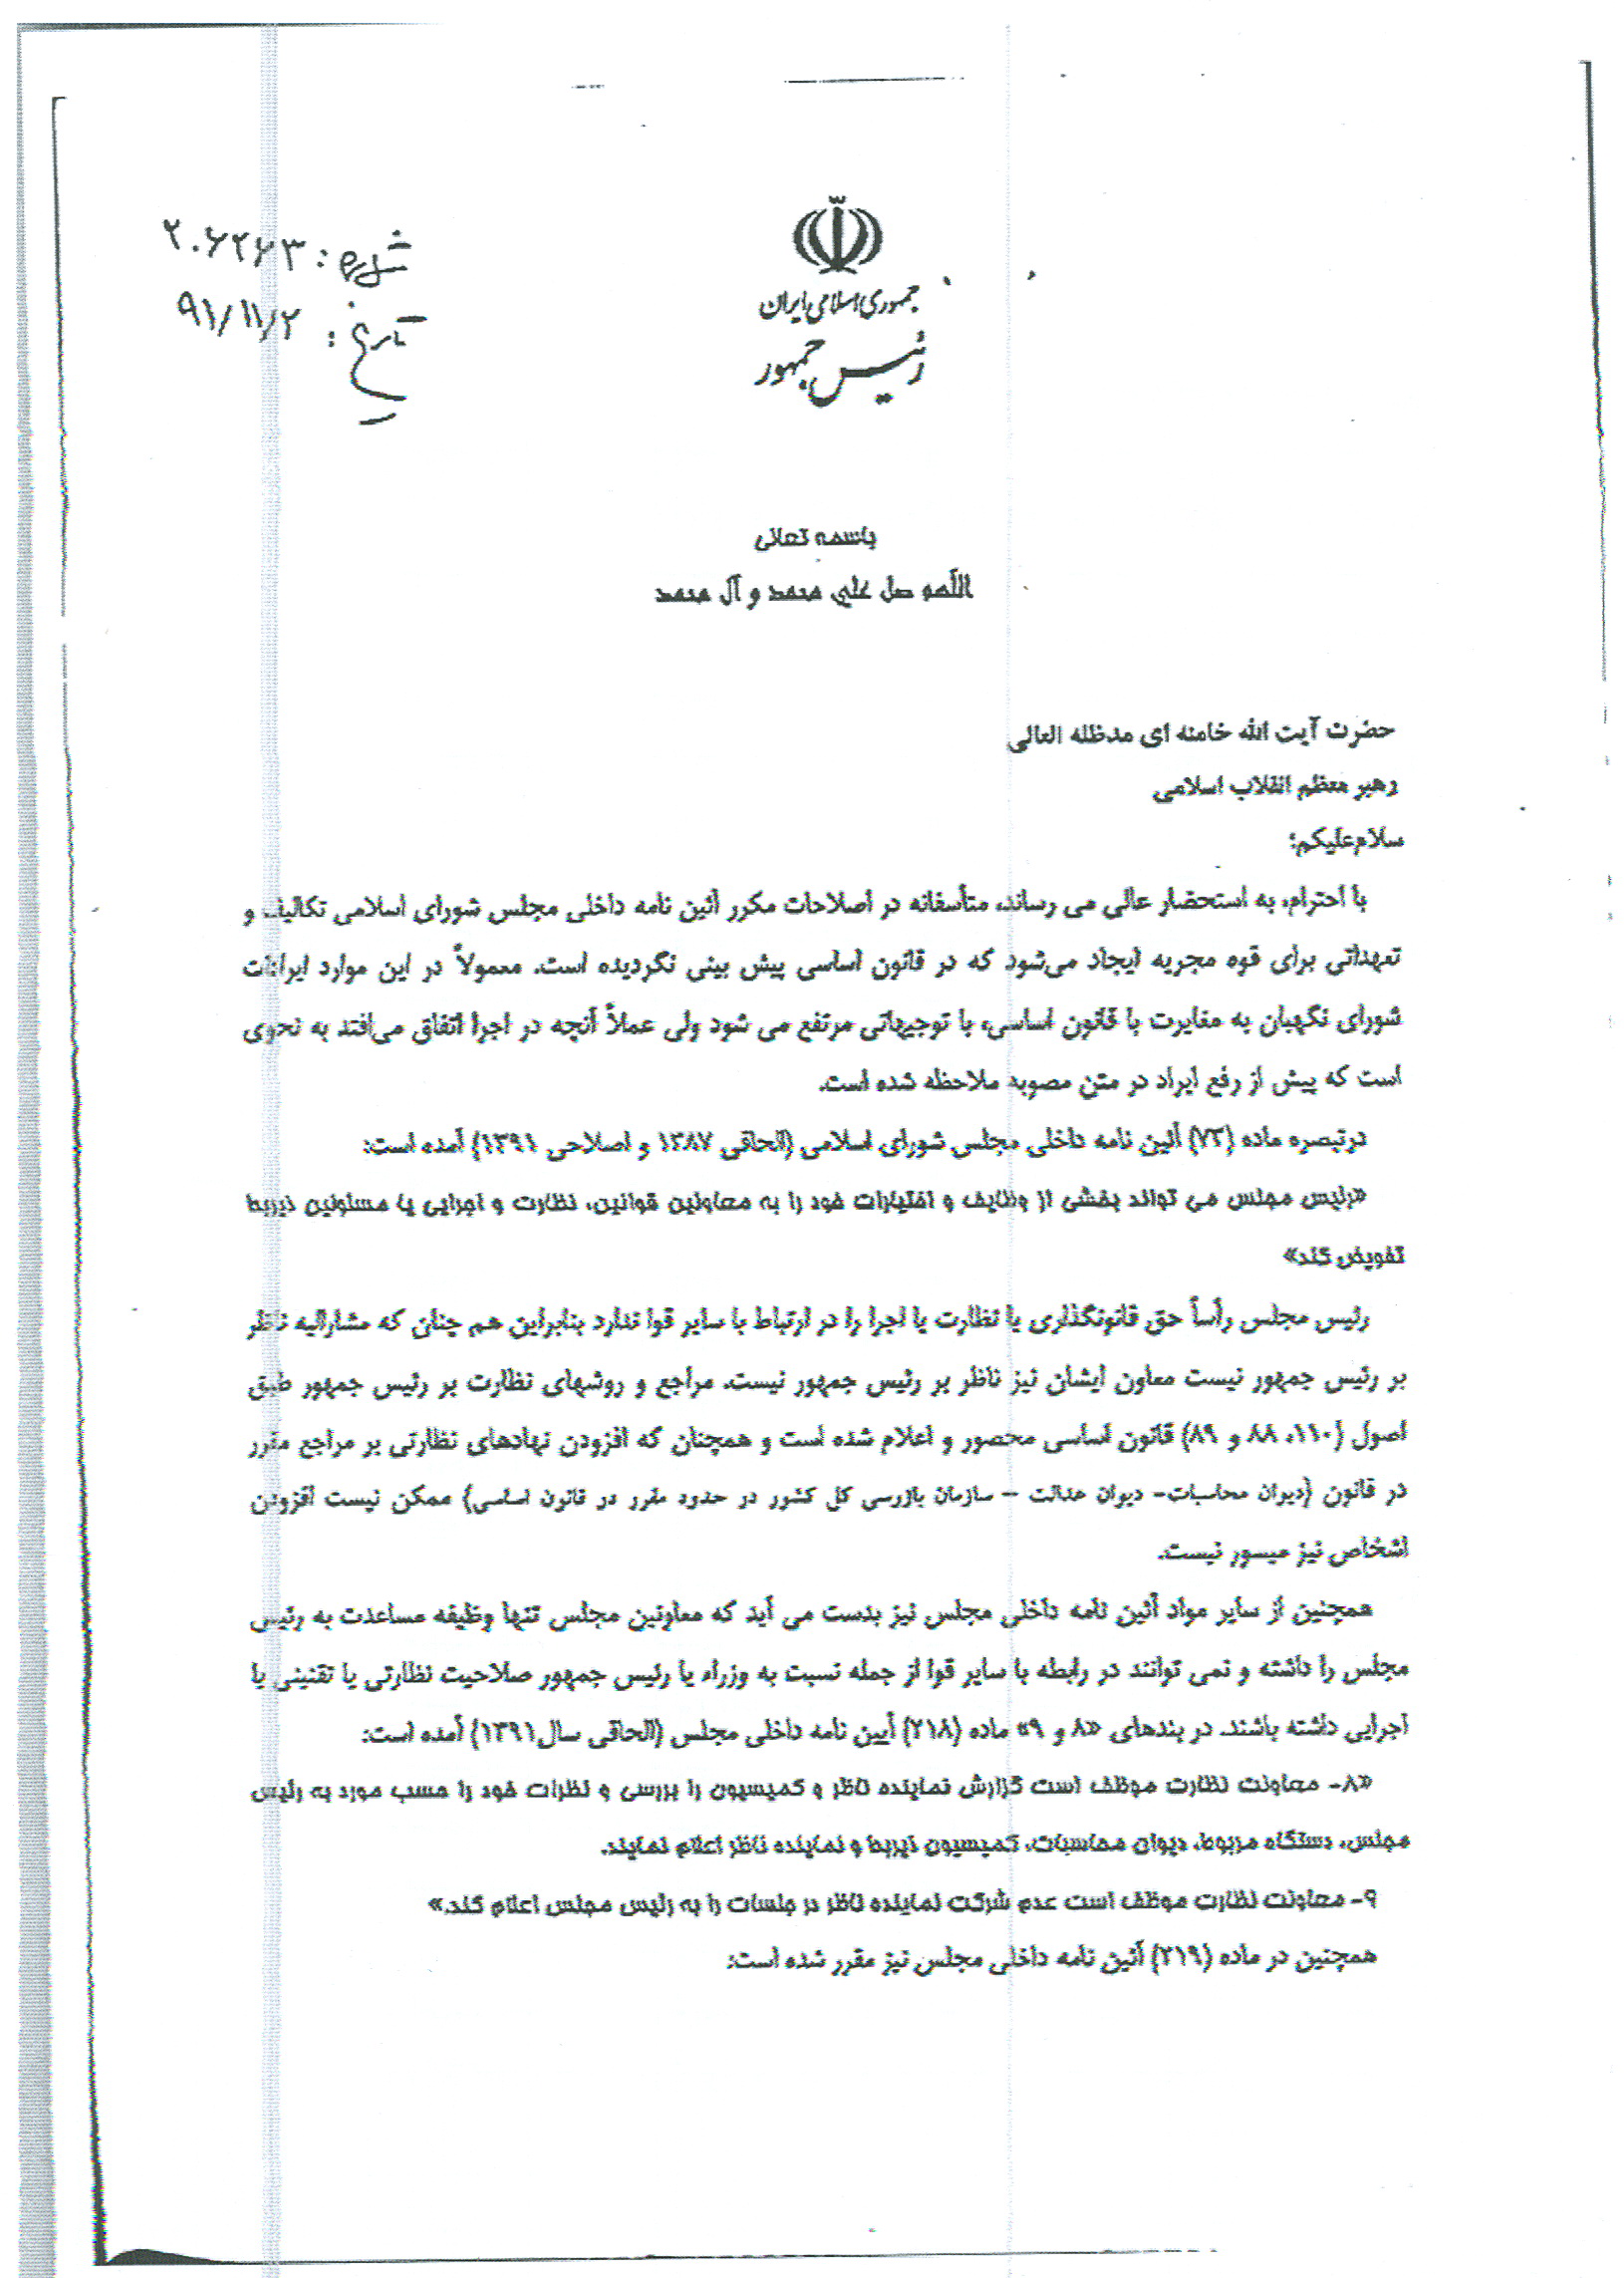 جمهوری اسلامی ایران
رئیس جمهور
شماره: ۲۰۶۲۶۳
تاریخ: ۹۱/۱۱/۲
باسمه تعالی
اللّهم صل علی محمد و آل محمد
حضرت آیت الله خامنه ای مدظله العالی
رهبر معظم انقلاب اسلامی
سلام‌علیکم؛
با احترام، به استحضار عالی می رساند، متأسفانه در اصلاحات مکرر آئین نامه داخلی مجلس شورای اسلامی تکالیف و
تعهداتی برای قوه مجریه ایجاد می‌شود که در قانون اساسی پیش بینی نگردیده است. معمولاً در این موارد ایرادات
شورای نگهبان به مغایرت با قانون اساسی، با توجیهاتی مرتفع می شود ولی عملاً آنچه در اجرا اتفاق می‌افتد به نحوی
است که پیش از رفع ایراد در متن مصوبه ملاحظه شده است.
درتبصره ماده (۲۳) آئین نامه داخلی مجلس شورای اسلامی (الحاقی ۱۳۸۷ و اصلاحی ۱۳۹۱) آمده است:
«رئیس مجلس می تواند بخشی از وظایف و اختیارات خود را به معاونین قوانین، نظارت و اجرایی یا مسئولین ذیربط
تفویض کند»
رئیس مجلس رأساً حق قانونگذاری یا نظارت یا اجرا را در ارتباط با سایر قوا ندارد بنابراین هم چنان که مشارالیه ناظر
بر رئیس جمهور نیست معاون ایشان نیز ناظر بر رئیس جمهور نیست. مراجع و روشهای نظارت بر رئیس جمهور طبق
اصول (۱۱۰، ۸۸ و ۸۹) قانون اساسی محصور و اعلام شده است و همچنان که افزودن نهادهای نظارتی بر مراجع مقرر
در قانون (دیوان محاسبات- دیوان عدالت – سازمان بازرسی کل کشور در حدود مقرر در قانون اساسی) ممکن نیست افزودن
اشخاص نیز میسور نیست.
همچنین از سایر مواد آئین نامه داخلی مجلس نیز بدست می آید که معاونین مجلس تنها وظیفه مساعدت به رئیس
مجلس را داشته و نمی توانند در رابطه با سایر قوا از جمله نسبت به وزراء یا رئیس جمهور صلاحیت نظارتی یا تقنینی یا
اجرایی داشته باشند. در بندهای «۸ و ۹» ماده (۲۱۸) آیین نامه داخلی مجلس (الحاقی سال۱۳۹۱) آمده است:
«۸- معاونت نظارت موظف است گزارش نماینده ناظر و کمیسیون را بررسی و نظرات خود را حسب مورد به رئیس
مجلس، دستگاه مربوط، دیوان محاسبات، کمیسیون ذیربط و نماینده ناظر اعلام نمایند.
۹- معاونت نظارت موظف است عدم شرکت نماینده ناظر در جلسات را به رئیس مجلس اعلام کند.»
همچنین در ماده (۲۱۹) آئین نامه داخلی مجلس نیز مقرر شده است: